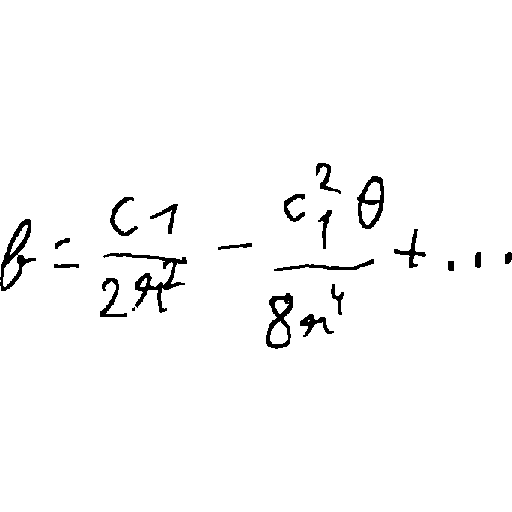 b = \frac{c_1}{2r^2} - \frac{c_1^2 \theta}{8r^4} + \ldots